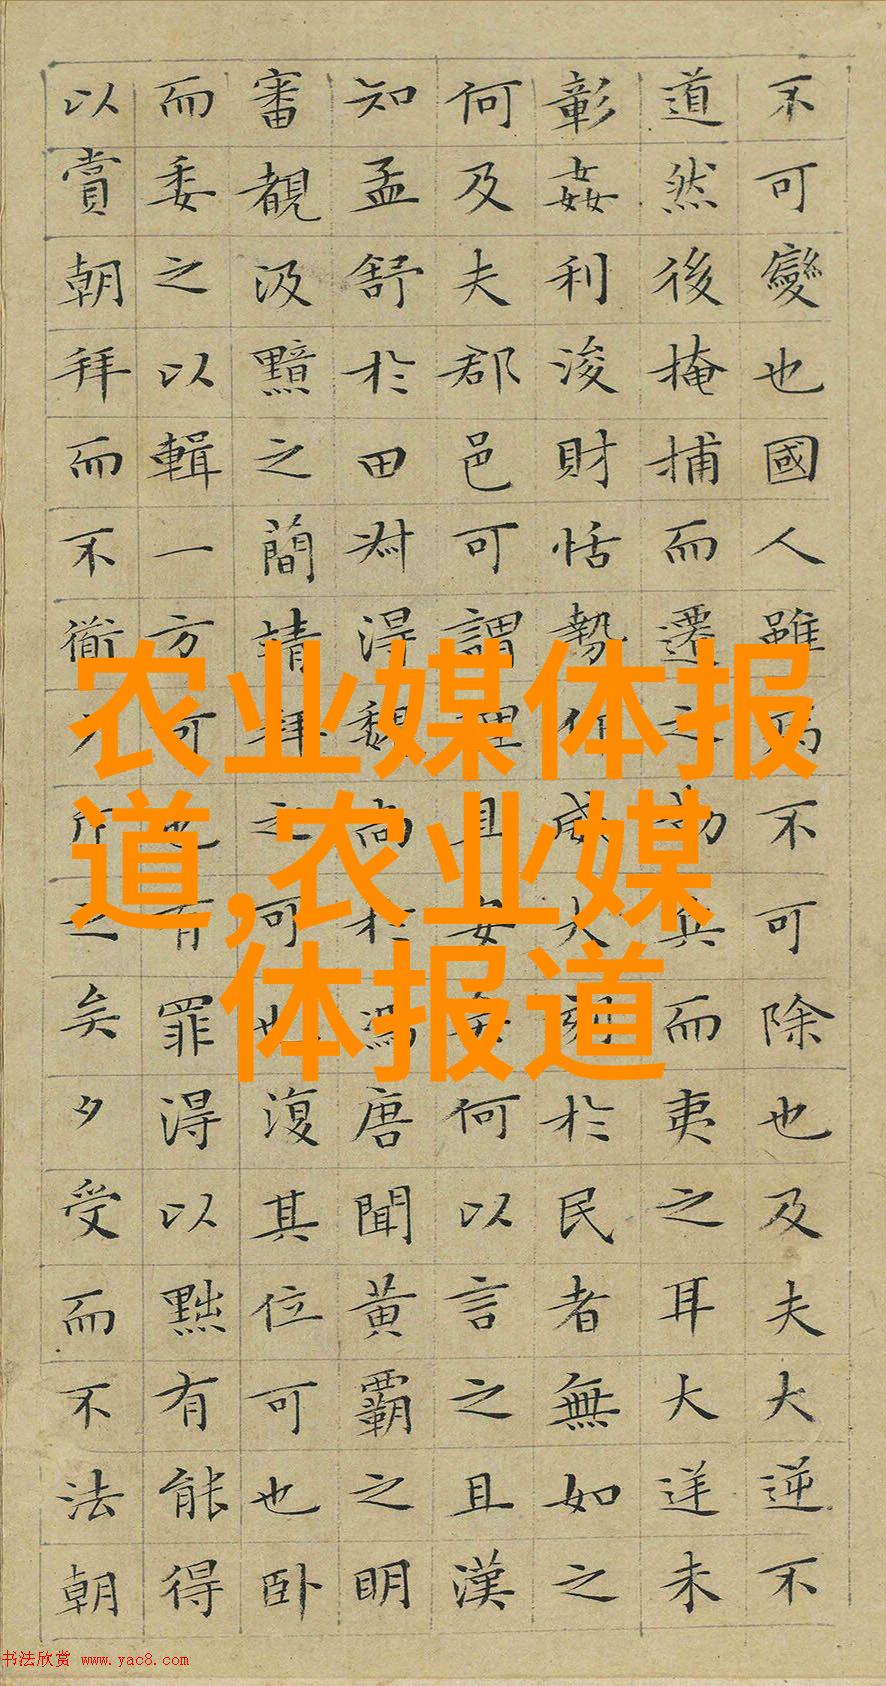 不可變也國人雖病不可除也及夫大逆不
道然後掩捕而遷之勒兵而夷之耳大逆未
彰姦利浚財恬勢作威大刻於民者無如之
何及夫郡邑可謂理且安矣何以言之且漢
知孟舒於田叔得魏尚於馮唐聞黃霸之明
審覩汲黯之簡靖拜之可也復其位可也臥
而委之以輯一方可也有罪得以黜有能得
以賞朝拜而不道夕斥之矣夕受而不法朝
农业媒体报
道,农业媒
体报道
书法欣赏 www.yac8.com